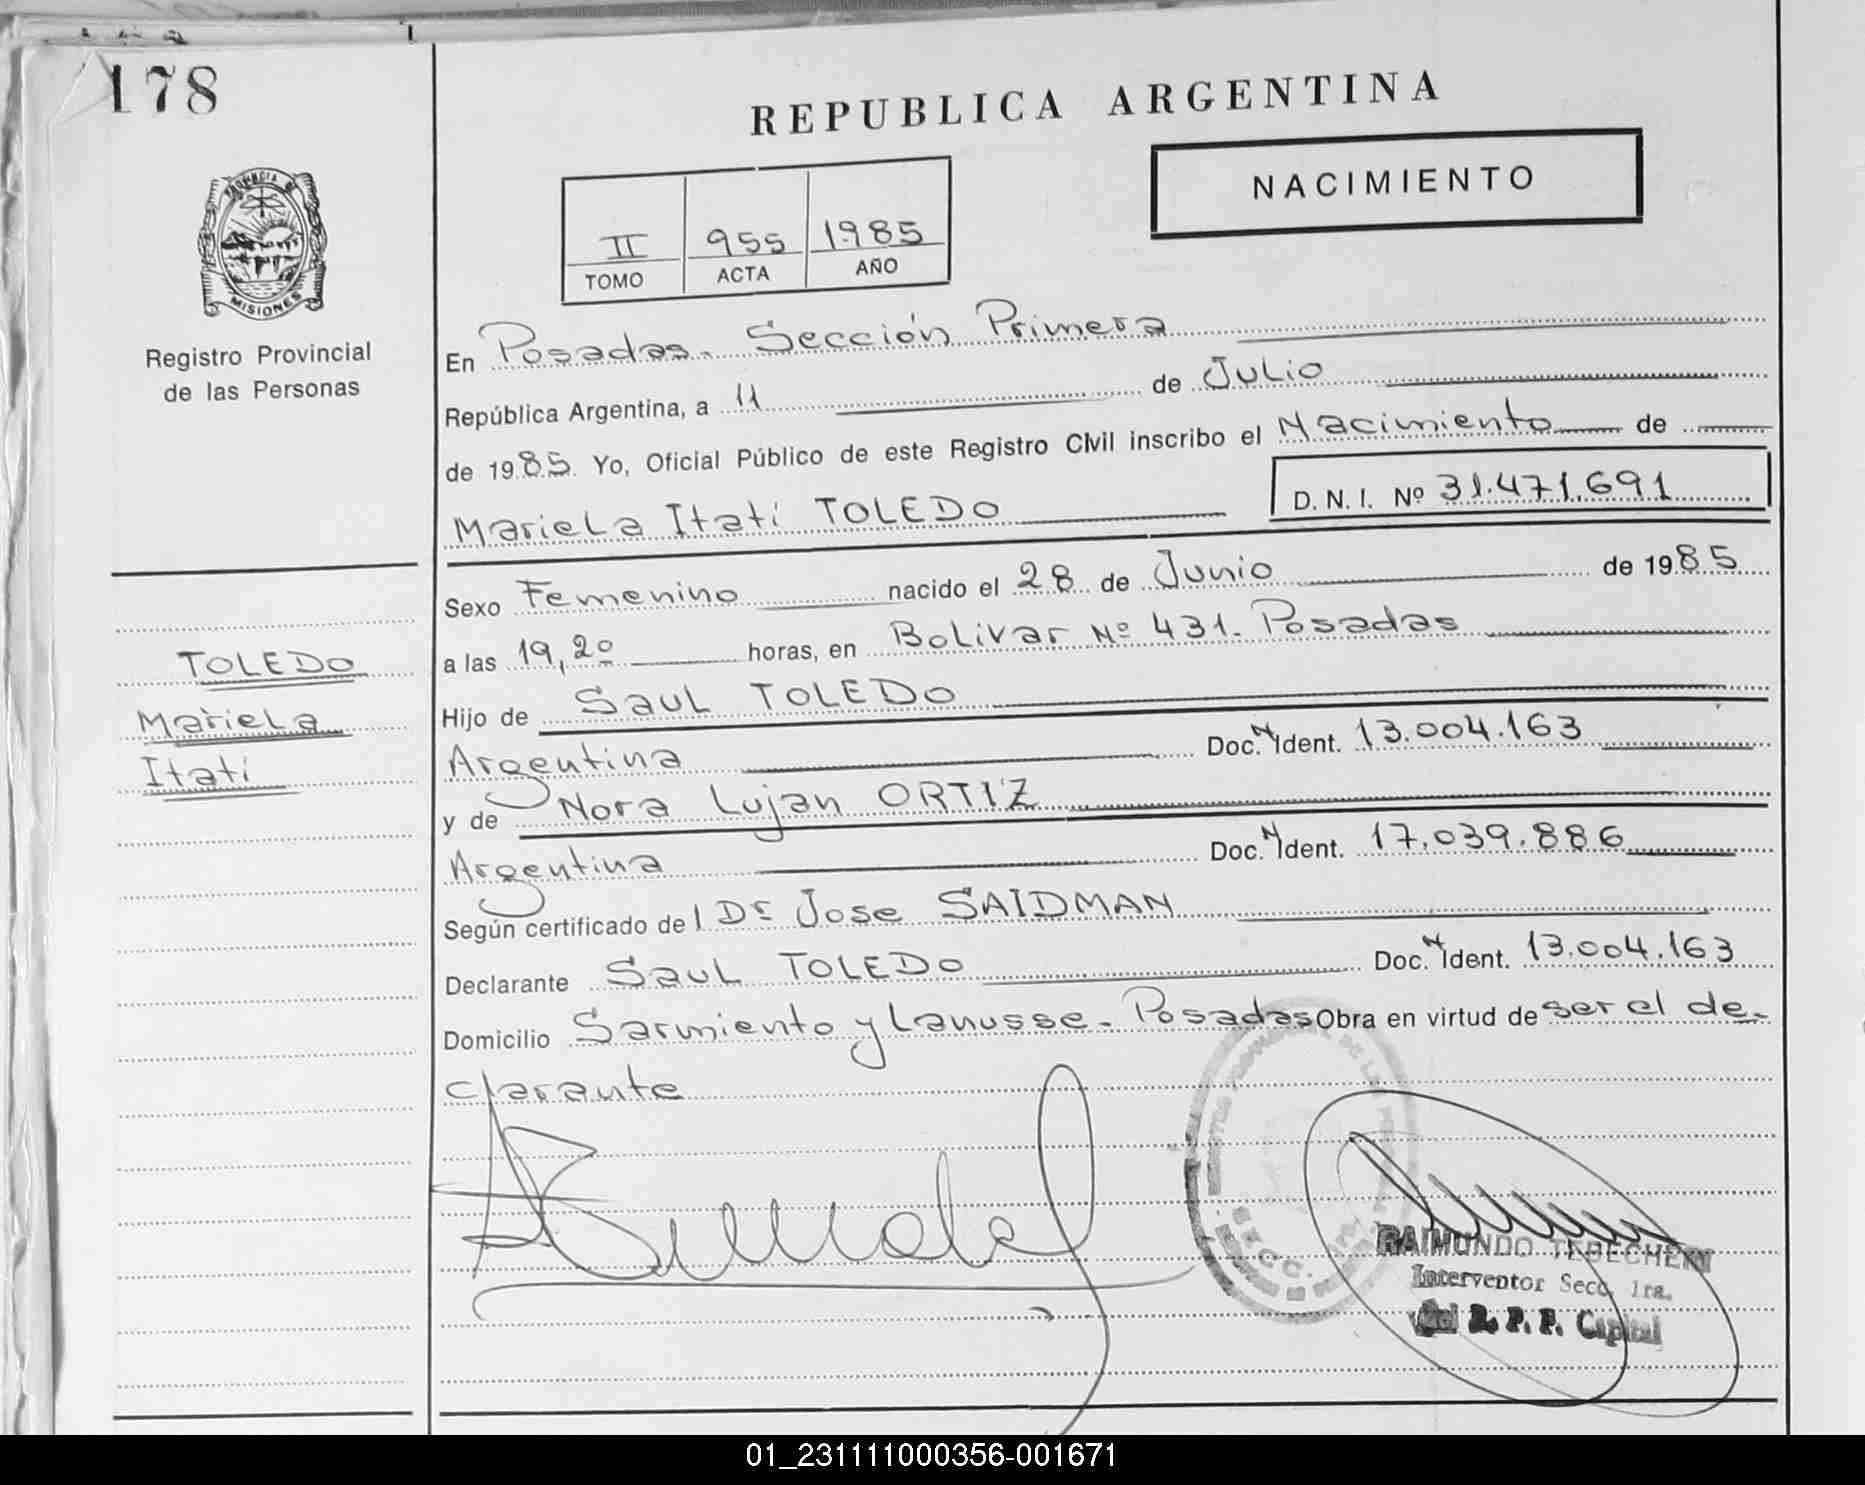 178
PROVINCIA DE
MISIONES
Registro Provincial
de las Personas
TOLEDO
Mariela
Itatí
REPUBLICA ARGENTINA
NACIMIENTO
II 955 1985
TOMO ACTA AÑO
En Posadas. Sección Primera
República Argentina, a 11 de Julio
de 1985. Yo, Oficial Público de este Registro Civil inscribo el Nacimiento de
Mariela Itatí TOLEDO D.N.I. Nº 31.471.691
Sexo Femenino nacido el 28 de Junio de 1985
a las 19,20 horas, en Bolivar Nº 431. Posadas
Hijo de Saul TOLEDO
Argentina Doc. N Ident. 13.004.163
y de Nora Lujan ORTIZ
Argentina Doc. N Ident. 17.039.886
Según certificado de l Dr Jose SAIDMAN
Declarante Saul TOLEDO Doc. N Ident. 13.004.163
Domicilio Sarmiento y Lanusse. Posadas Obra en virtud de ser el de-
clarante
RAIMUNDO TEBECHERI
Interventor Secc. 1ra.
del R. P. P. Capital
01_231111000356-001671